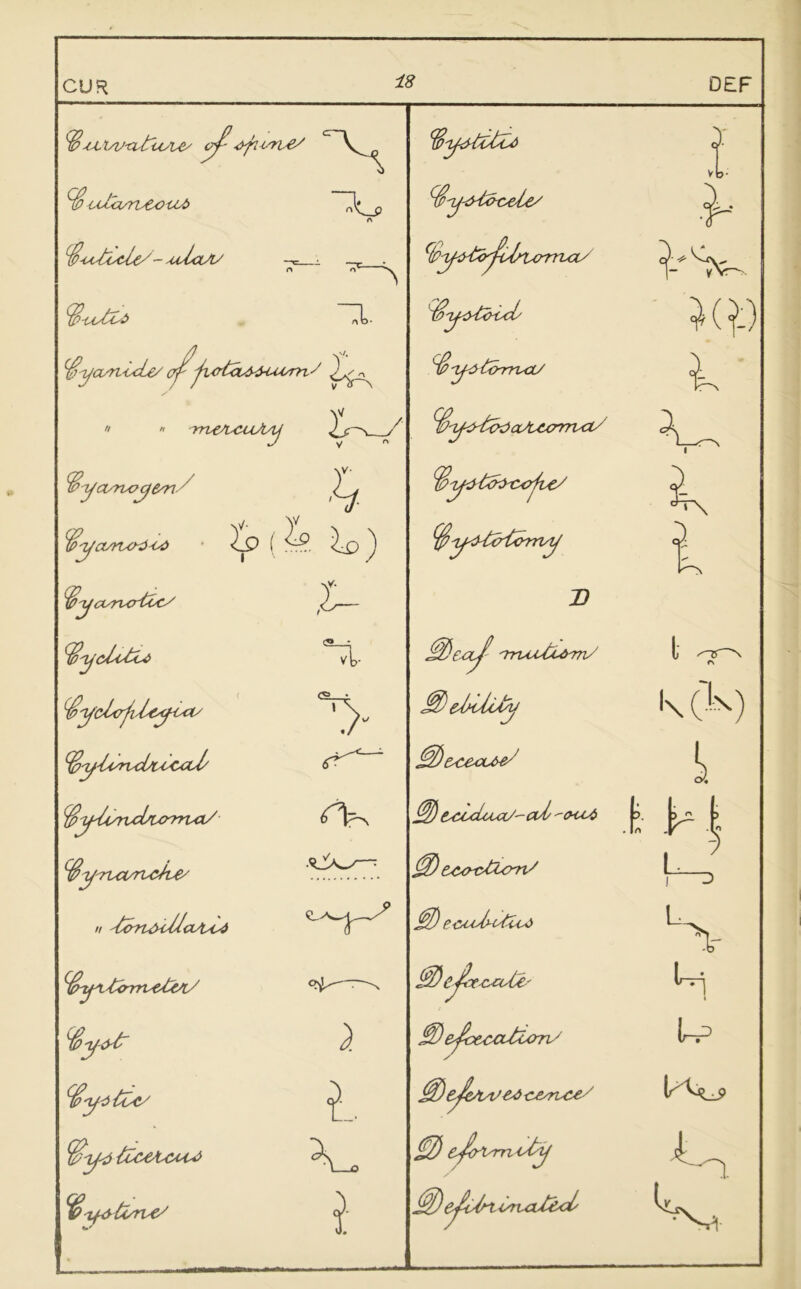 CUR 18 DEF
Curvature of spine
Cutaneous
Cuticle-ular
Cutis
Cyanide of potassium
" " mercury
Cyanogen
Cyanosis
Cyanotic
Cyclitis
Cycloplegia
Cylindrical
Cylindroma
Cynanche
" tonsillaris
Cyrtometer
Cyst
Cystic
Cysticercus
Cystine
Cystitis
Cystocele
Cystofibroma
Cystoid
Cystoma
Cystosarcoma
Cystoscope
Cystotomy
D
Deaf mutism
Debility
Decease
Decidua-al-ous
Decoction
Decubitus
Defæcate
Defæcation
Defervescence
Deformity
Defibrinated